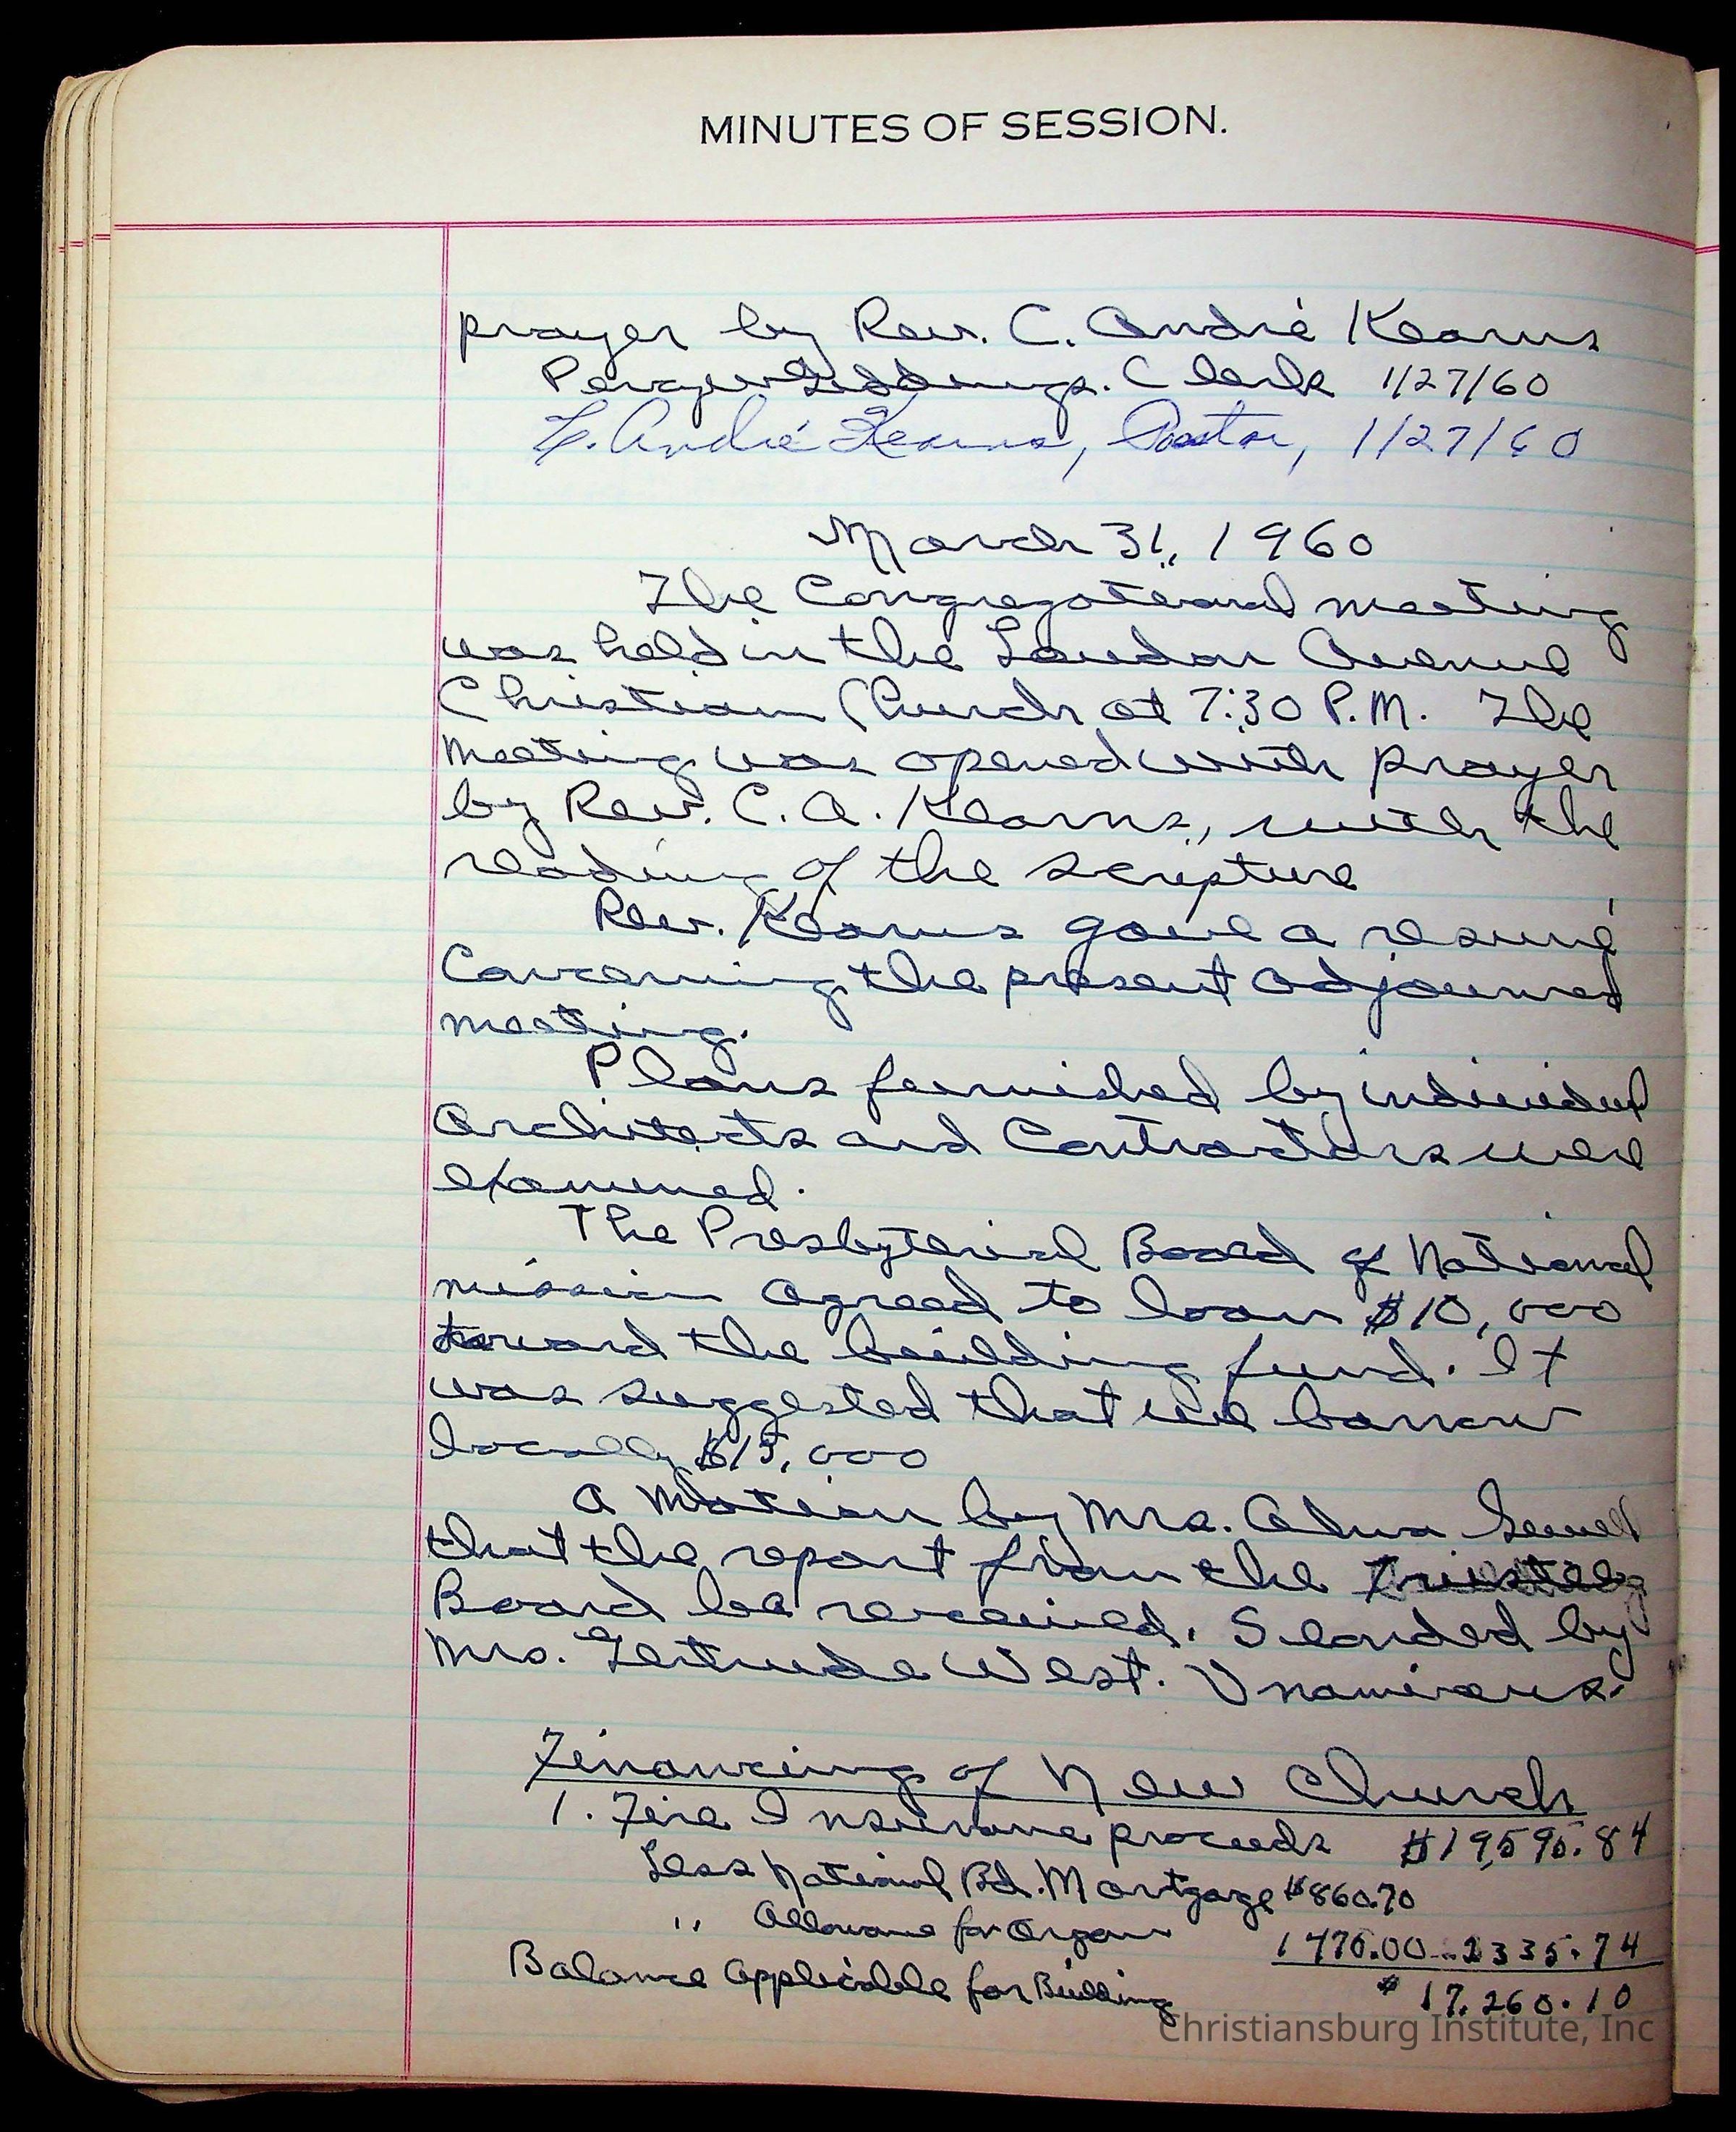 MINUTES OF SESSION.
prayer by Rev. C. André Kearns
Giddings. Clerk 1/27/60
C. André Kearns, Pastor, 1/27/60
March 31, 1960
The Congregational meeting
was held in the Loudon Avenue
Christian Church at 7:30 P.M. The
meeting was opened with prayer
by Rev. C. A. Kearns, with the
reading of the scripture
Rev. Kearns gave a resumé
Concerning the present adjourned
meeting.
Plans furnished by individual
Architects and Contractors were
examined.
The Presbyterial Board of National
mission agreed to loan $10,000
toward the building fund. It
was suggested that we borrow
locally $15,000
A Motion by Mrs. Alma Sewell
that the report from the Trustee
Board be received. Seconded by
Mrs. Gertrude West. Unamious.
Financing of New Church
1. Fire Insurance proceeds $19,595.84
Less National Bd. Mortgage $860.70
" Allowance for Organ 1475.00 2335.74
Balance Applicable for Building $17,260.10
Christiansburg Institute, Inc